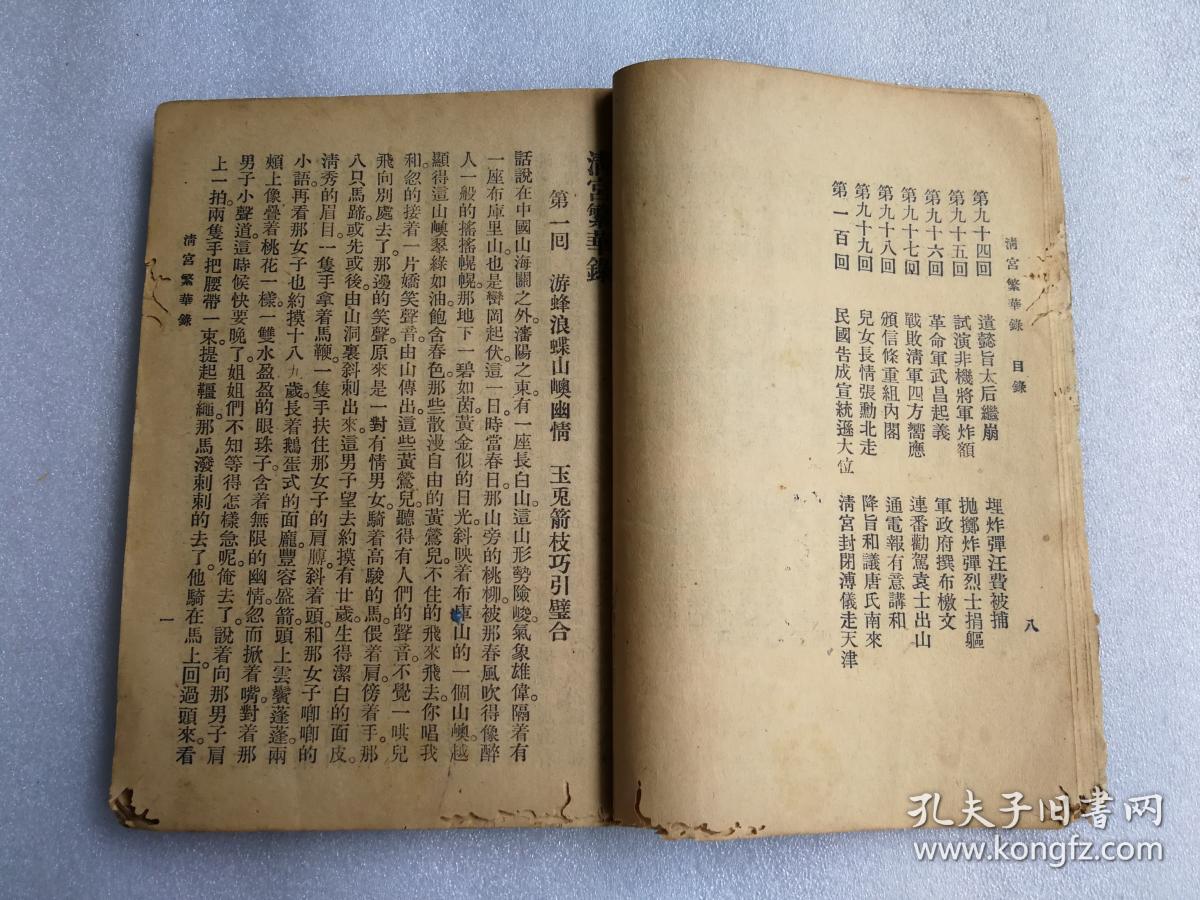 清宮繁華錄 目錄
八
第九十四回 遣懿旨太后繼崩 埋炸彈汪費被捕
第九十五回 試演非機將軍炸額 拋擲炸彈烈士捐軀
第九十六回 革命軍武昌起義 軍政府撰布檄文
第九十七回 戰敗清軍四方響應 連番勸駕袁士出山
第九十八回 頒信條重組內閣 通電報有意講和
第九十九回 兒女長情張勳北走 降旨和議唐氏南來
第一百回 民國告成宣統遜大位 清宮封閉溥儀走天津
清宮繁華錄
第一回 游蜂浪蝶山嶼幽情 玉兎箭枝巧引璧合
話說在中國山海關之外瀋陽之東有一座長白山。這山形勢險峻。氣象雄偉。隔着有
一座布庫里山。也是巒岡起伏。這一日時當春日。那山旁的桃柳。被那春風吹得像醉
人一般的搖搖幌幌。那地下一碧如茵。黃金似的日光。斜映着布庫山的一個山嶼。越
顯得這山嶼翠綠如油。飽含春色。那些散漫自由的黃鶯兒。不住的飛來飛去。你唱我
和。忽的接着一片嬌笑聲音。由山傳出。這些黃鶯兒聽得有人們的聲音。不覺一哄兒
飛向別處去了。那邊的笑聲原來是一對有情男女。騎着高駿的馬。偎着肩。傍着手。那
八只馬蹄。或先或後。由山洞裏斜刺出來。這男子望去約摸有廿歲。生得潔白的面皮。
清秀的眉目。一隻手拿着馬鞭。一隻手扶住那女子的肩膀。斜着頭。和那女子喞喞的
小語。再看那女子也約摸十八九歲。長着鵝蛋式的面龐。豐容盛箭。頭上雲鬢蓬蓬。兩
頰上像疊着桃花一樣。一雙水盈盈的眼珠子。含着無限的幽情。忽而掀着嘴。對着那
男子小聲道。這時候快要晚了。姐姐們不知等得怎樣急呢。俺去了。說着向那男子肩
上一拍。兩隻手把腰帶一束。提起韁繩。那馬潑剌剌的去了。他騎在馬上。回過頭來。看
清宮繁華錄
一
孔夫子旧书网
www.kongfz.com